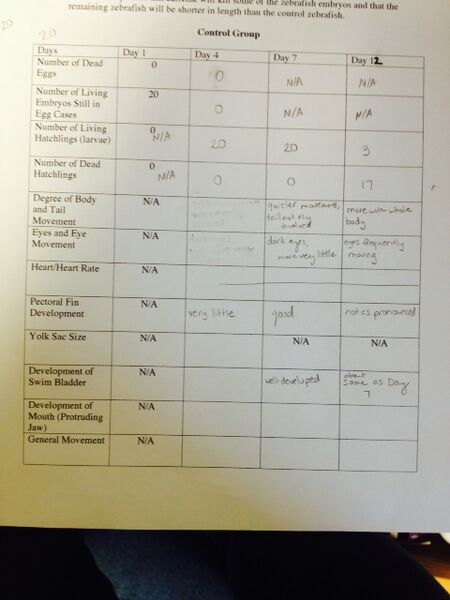 will kill some of the zebrafish embryos and that the
remaining zebrafish will be shorter in length than the control zebrafish.
20
20
Control Group
Days Day 1 Day 4 Day 7 Day 12
Number of Dead 0 0 N/A N/A
Eggs
Number of Living 20 0 N/A N/A
Embryos Still in
Egg Cases
Number of Living 0 N/A 20 20 3
Hatchlings (larvae)
Number of Dead 0 N/A 0 0 17
Hatchlings
Degree of Body N/A quicker movements, more with whole
and Tail tail not rly body
Movement involved
Eyes and Eye N/A dark eyes, eyes frequently
Movement move very little moving
Heart/Heart Rate N/A
Pectoral Fin N/A very little good not as pronounced
Development
Yolk Sac Size N/A N/A N/A
Development of N/A well-developed about same as Day
Swim Bladder 7
Development of N/A
Mouth (Protruding
Jaw)
General Movement N/A